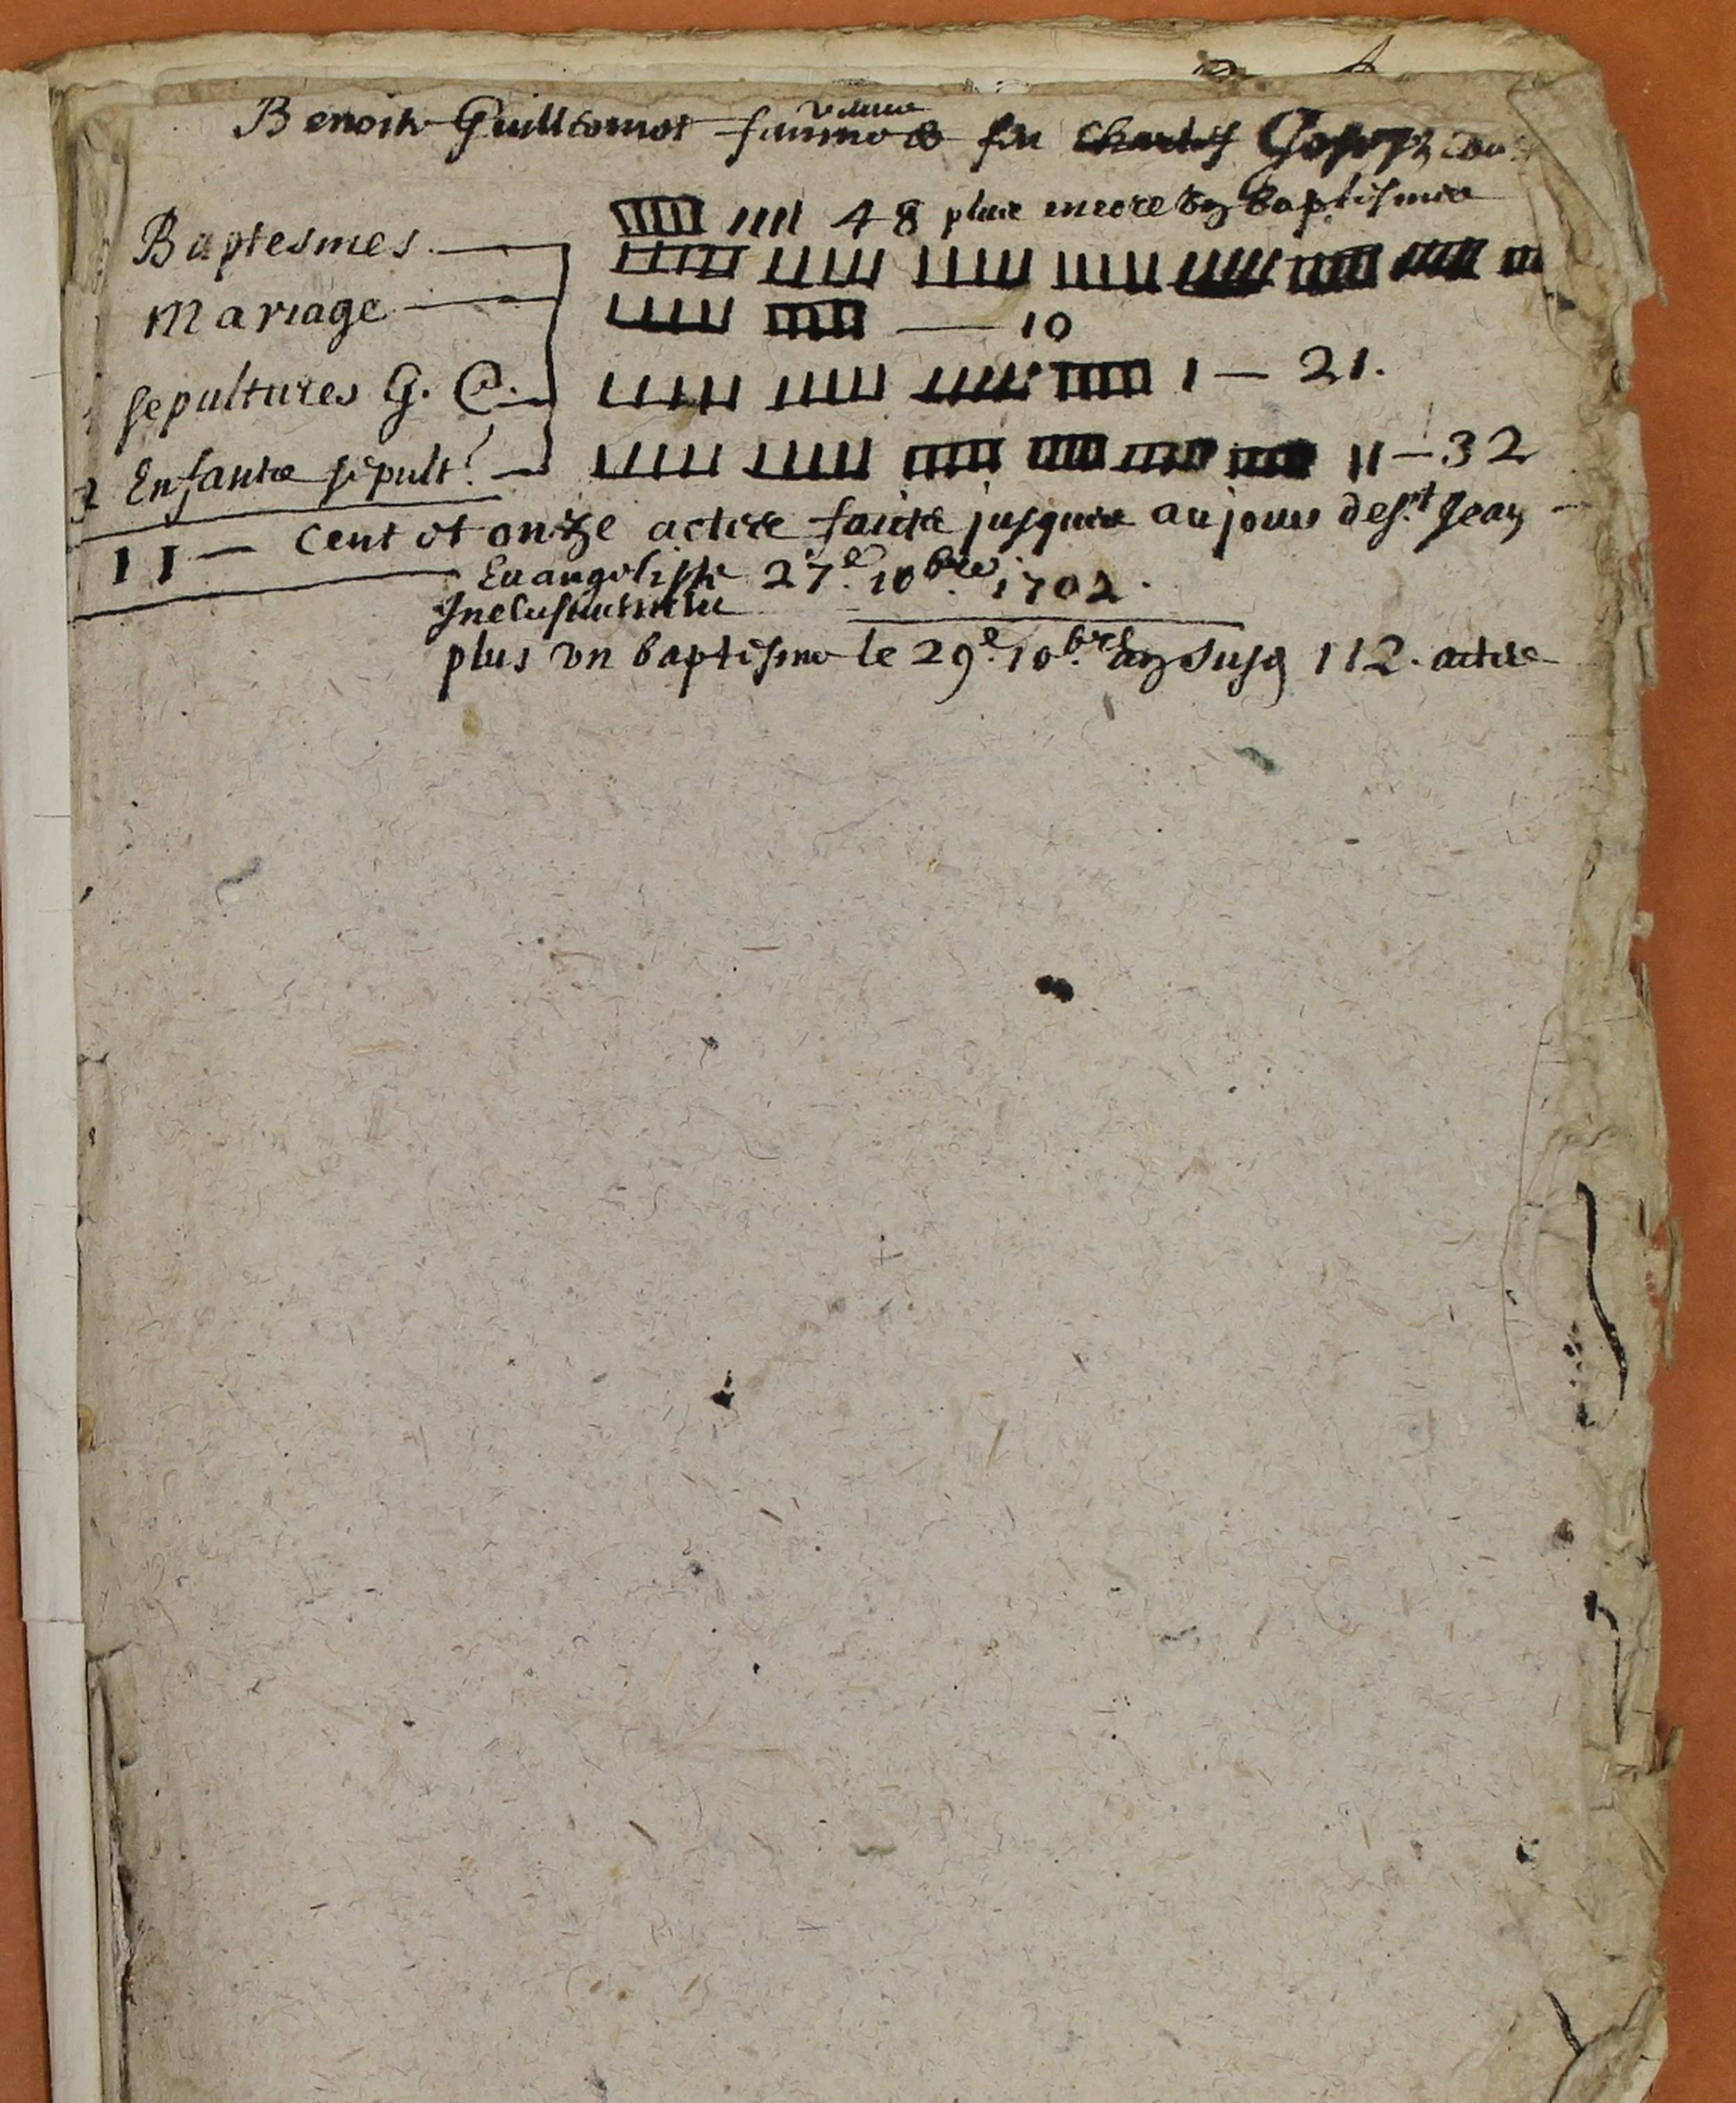 Benoist Guillomot femme veuve feu Charles
48 plus encore un baptisme
Baptesmes
Mariage 10
sepultures G. C. 1 — 21.
Enfants sepult. 11 — 32
11 — Cent et onze actes faits jusques au jour de st Jean
Euangeliste 27e. 10bre. 1702.
Inclusivement
plus vn baptisme le 29e. 10bre 112. actes